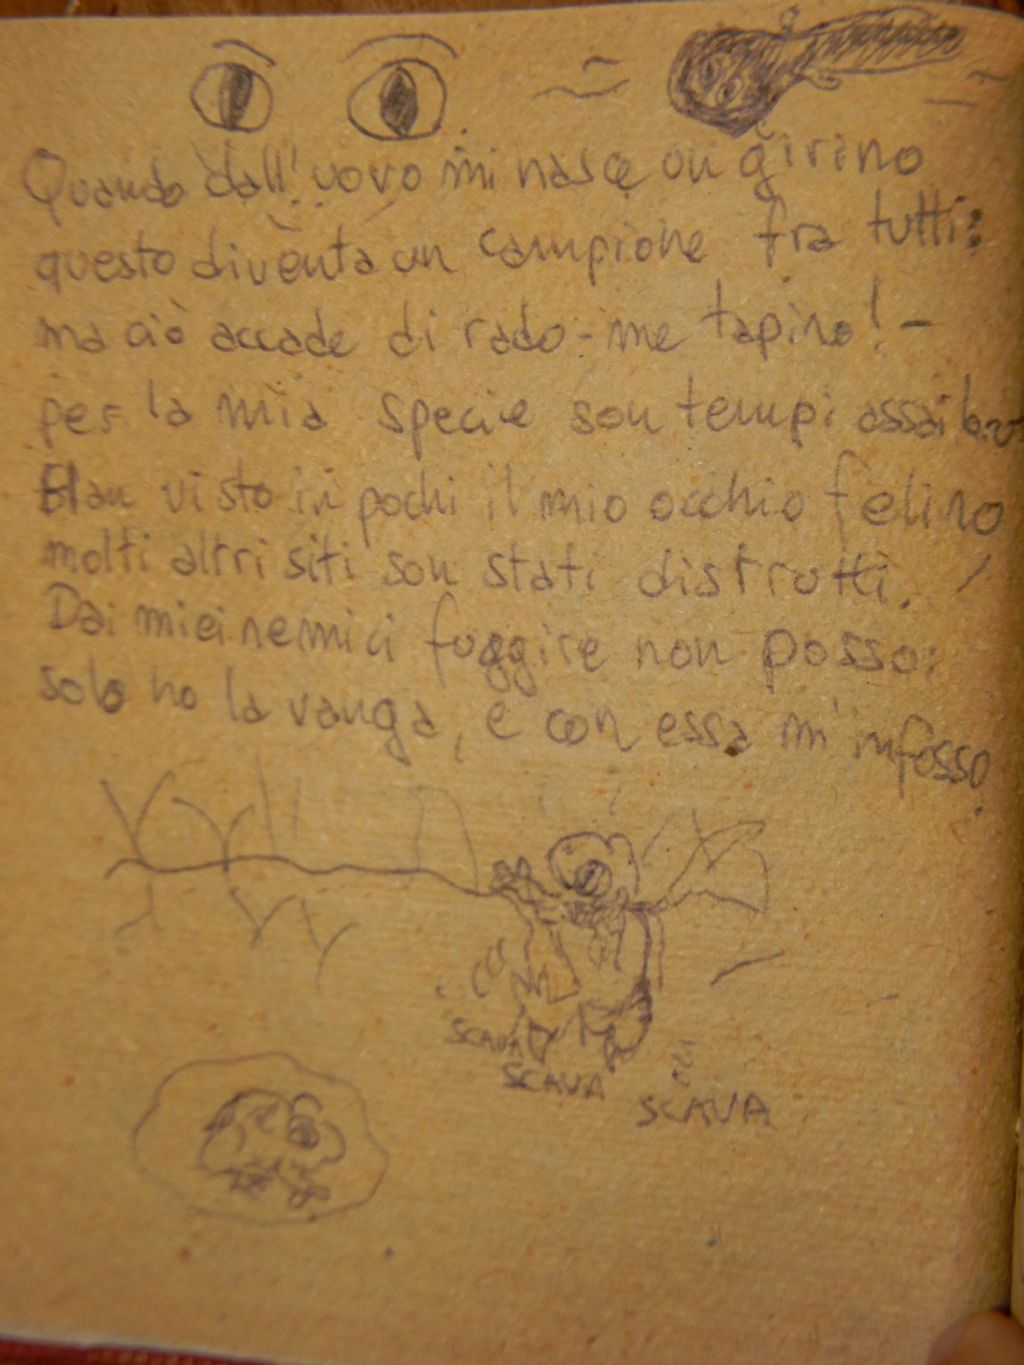 Quando dall'uovo mi nasce un girino
questo diventa un campione fra tutti:
ma ciò accade di rado - me tapino! -
per la mia specie son tempi assai
Han visto in pochi il mio occhio felino
molti altri siti son stati distrutti.
Dai miei nemici fuggire non posso:
solo ho la vanga, e con essa m'infosso.
SCAVA
SCAVA
SCAVA